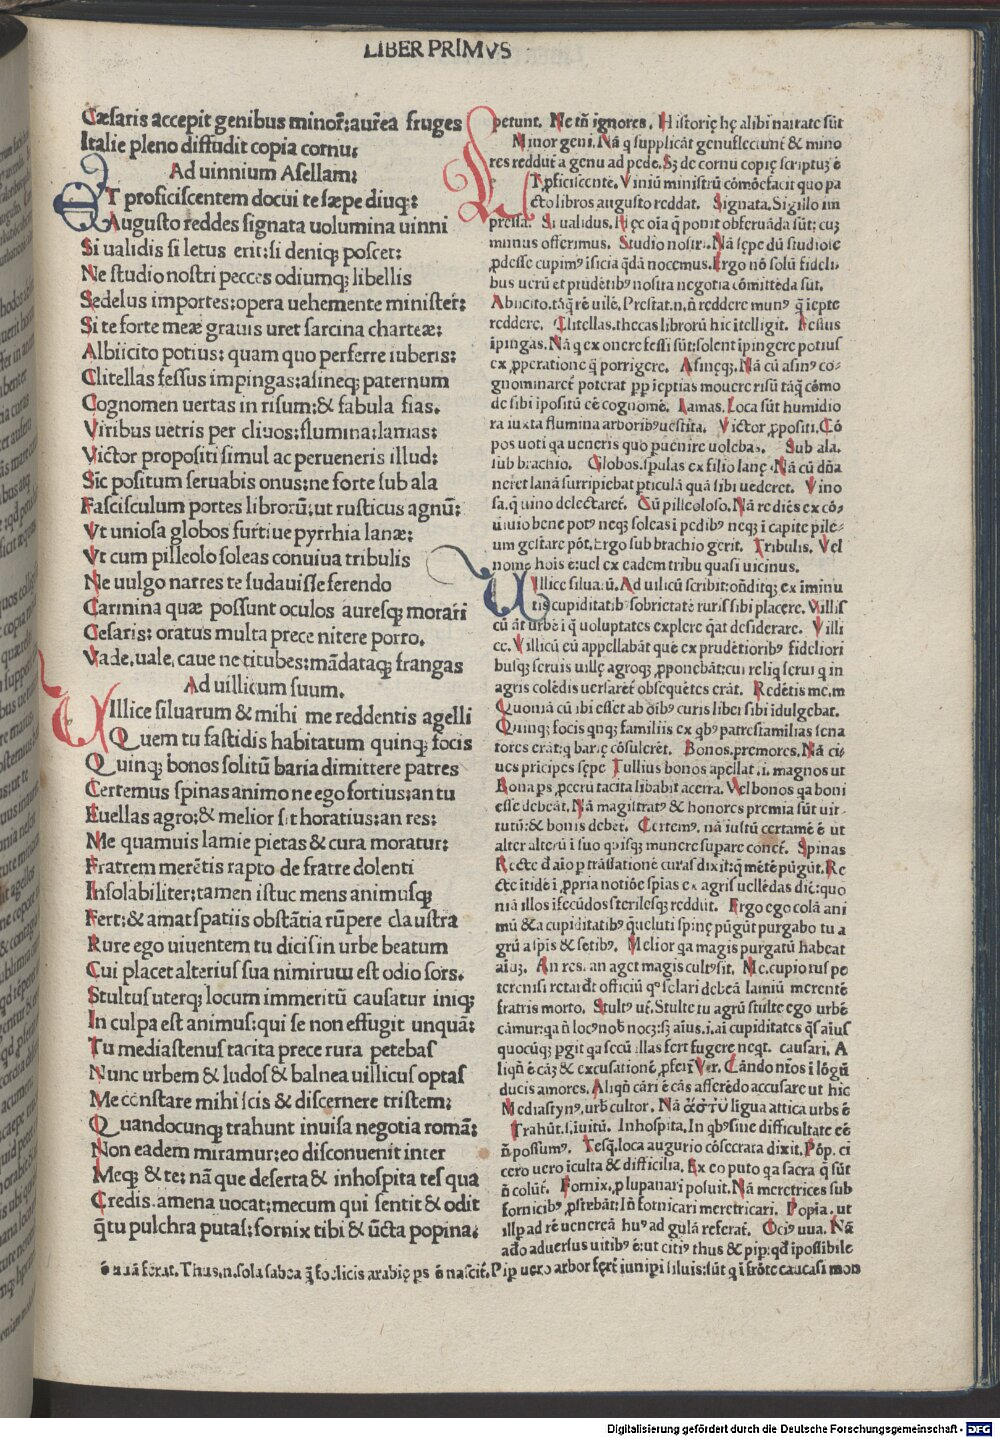 LIBER PRIMVS
Cæsaris accepit genibus minor̃: aurea fruges
Italie pleno diffudit copia cornu:
Ad uinnium Asellam:
T proficiscentem docui te sæpe diuq;:
Augusto reddes signata uolumina uinni
Si ualidis si letus erit: si deniq; poscet:
Ne studio nostri pecces odiumq; libellis
Sedelus importes: opera uehemente minister̃:
Si te forte meæ grauis uret sarcina charteæ:
Albiicito potius: quam quo perferre iuberis:
Clitellas fessus impingas: asineq; paternum
Cognomen uertas in risum: & fabula fias.
Viribus uetris per cliuos: flumina: lamas:
Victor propositi simul ac perueneris illud:
Sic positum seruabis onus: ne forte sub ala
Fasciculum portes librorū: ut rusticus agnū:
Vt uniosa globos furtiue pyrrhia lanæ:
Vt cum pilleolo soleas conuiua tribulis
Ne uulgo narres te sudauisse ferendo
Carmina quæ possunt oculos auresq; morari
Cesaris: oratus multa prece nitere porro.
Vade. uale. caue ne titubes: mādataq; frangas
Ad uillicum suum.
Illice siluarum & mihi me reddentis agelli
Quem tu fastidis habitatum quinq; focis
Quinq; bonos solitū baria dimittere patres
Certemus spinas animo ne ego fortius: an tu
Euellas agro: & melior sit horatius: an res:
Me quamuis lamie pietas & cura moratur:
Fratrem merētis rapto de fratre dolenti
Insolabiliter: tamen istuc mens animusq;
Fert: & amat spatiis obstātia rūpere claustra
Rure ego uiuentem tu dicis in urbe beatum
Cui placet alterius sua nimiruw est odio sors.
Stultus uterq; locum immeritū causatur iniq;
In culpa est animus: qui se non effugit unquā:
Tu mediastenus tacita prece rura petebas
Nunc urbem & ludos & balnea uillicus optas
Me constare mihi scis & discernere tristem:
Quandocunq; trahunt inuisa negotia romā:
Non eadem miramur: eo disconuenit inter
Meq; & te: nā que deserta & inhospita tesqua
Credis. amena uocat: mecum qui sentit & odit
q̄ tu pulchra putas: fornix tibi & ūcta popina:
petunt. Ne tñ ignores. Historię hę alibi narrate sūt
Minor geni. Nā q supplicāt genuflectunt & mino
res reddūt a genu ad pede. Sȝ de cornu copię scriptuȝ ē
T pficiscente. Viniū ministrū cōmōefacit quo pa
cto libros augusto reddat. Signata. Sigillo im
pressa. Si ualidus. Hęc oīa q̄ ponit obseruāda sūt: cuȝ
munus offerimus. Studio nostri. Nā sępe dū studiose
ꝓdesse cupimꝰ isicia q̄dā nocemus. Ergo nō solū fideli
bus uerū et prudētibꝰ nostra negotia cōmitteda sūt.
Abiicito. tāq̄ rē uilē. Prestat. n. ñ reddere munꝰ q̄ iepte
reddere. Clitellas. thecas librorū hic itelligit. Fessus
ipingas. Nā q ex onere fessi sūt: solent ipingere potius
ex ꝓperatione q̄ porrigere. Asineq;. Nā cū asinꝰ co-
gnominaret poterat ppieptias mouere risū tāq̄ cōmo
de sibi ipositū eē cognomē. Lamas. Loca sūt humidio
ra iuxta flumina arboribꝰ uestita. Victor ꝓpositi. Cō
pos uoti qa ueneris quo puenire uolebas. Sub ala.
sub brachio. Globos. spulas ex filio lanę. Nā cū dña
neret lanā surripiebat pticulā quā sibi uederet. Vino
sa. q̄ uino delectaret. Cū pilleoloso. Nā rediēs ex cō-
uiuio bene potꝰ neq; soleas i pedibꝰ neq; i capite pile-
um gestare pōt. Ergo sub brachio gerit. Tribulis. Vel
nome hoīs ē: uel ex eadem tribu quasi uicinus.
Illice silua. ū. Ad uilicū scribit: oñditq; ex iminu
tis cupiditatibꝰ sobrietatē ruris sibi placere. Villis
cū āt urbē i q̄ uoluptates explere q̄at desiderare. Villi
ce. Villicū eū appellabāt quē ex prudētioribꝰ fideliori
busq; seruis uillę agroq; ꝓponebāt: cui reliq serui q in
agris colēdis uersaret obsequētes erāt. Redētis me. m
Quoniā cū ibi esset ab oībꝰ curis liber sibi idulgebat.
Quinq; focis qnq; familiis ex qbꝰ patresfamilias sena
tores erāt: q barię cōsulerēt. Bonos. premores. Nā ci-
ues pricipes sępe Tullius bonos apellat. i. magnos ut
Bona ps ꝓcerū tacita libabit acerra. Vel bonos qa boni
esse debeāt. Nā magistratꝰ & honores premia sūt uir-
tutū: & bonis debet. Certemꝰ. nā iustū certamē ē ut
alter alterū i suo qisq; munere supare conet. Spinas
Recte d aīo p trāslationē curas dixit: q mētē pūgūt. Re
cte itidē i ꝓpria notiōe spias ex agris uellēdas dic: quo
niā illos ifecūdos sterilesq; reddūt. Ergo ego colā ani
mū & a cupiditatibꝰ que luti spinę pūgūt purgabo tu a
grū a spis & setibꝰ. Melior qa magis purgatū habeat
aiuȝ. An res. an ager magis cultꝰ sit. Me. cupio rus pe
tere nisi retardt officiū qꝰ solari debeā lamiū merentē
fratris morto. Stultꝰ ut. Stulte tu agrū stulte ego urbē
cāmur: qa ñ locꝰ nob nocȝ: sȝ aīus. i. ai cupiditates q̄s aīus
quocūq; pgit qa secū illas fert fugere neqt. causari. A
liqñ ē cāȝ & excusationē ꝓferr̃ Ver. Cādo nr̃os i lōgū
ducis amores. Aliqñ cāri ē cās afferēdo accusare ut hic
Mediastynꝰ. urbꝰ cultor. Nā ἄστυ ligua attica urbs ē
Trahūt. s. iuitū. Inhospita. In qbꝰ sine difficultate eē
ñ possumꝰ. Tesq̄. loca augurio cōsecrata dixit. Pōp. ci
cero uero iculta & difficilia. Ex eo puto qa sacra q̄ sūt
ñ colūt. Fornix. p lupanari posuit. Nā meretrices sub
fornicibꝰ ꝓstrebāt: In fornicari meretricari. Popia. ut
ill p ad rē uenereā huꝰ ad gulā referat. Ociꝰ uua. Nā
ado aduersus uitibꝰ ē: ut citiꝰ thus & pip: qd ipossibile
ē uuā ferat. Thus. n. sola sabea q̄ foelicis arabię ps ē nascit. Pip uero arbor fert iunipi siluis: sūt q i frōte caucasi mon
Digitalisierung gefördert durch die Deutsche Forschungsgemeinschaft - DFG